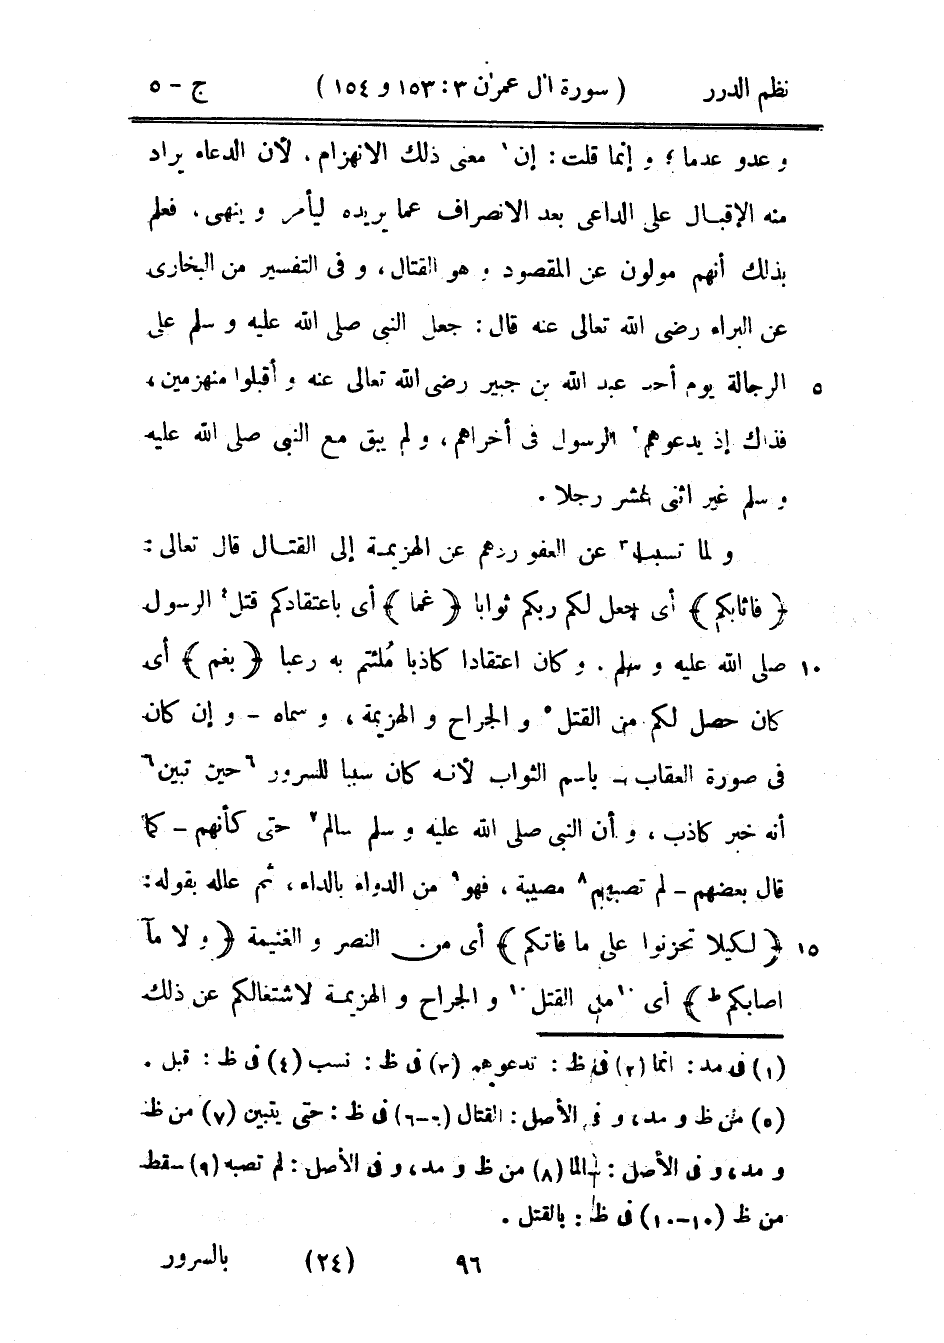 نظم الدرر ( سورة اٰل عمرٰن ٣: ١٥٣ و ١٥٤ ) ج - ٥
و عدو عدما؛ و إنما قلت: إن ١ معنى ذلك الانهزام، لأن الدعاء يراد
منه الإقبال على الداعى بعد الانصراف عما يريده ليأمر و ينهى، فعلم
بذلك أنهم مولون عن المقصود و هو القتال، و فى التفسير من البخارى
عن البراء رضى الله تعالى عنه قال: جعل النبى صلى الله عليه و سلم على
٥ الرجالة يوم أحد عبد الله بن جبير رضى الله تعالى عنه و أقبلوا منهزمين،
فذاك إذ يدعوهم ٢ الرسول فى أخراهم، و لم يبق مع النبى صلى الله عليه
و سلم غير اثنى عشر رجلا .
و لما تسبب ٣ عن العفو ردهم عن الهزيمة إلى القتال قال تعالى:
﴿ فاثابكم ﴾ أى جعل لكم ربكم ثوابا ﴿ غما ﴾ أى باعتقادكم قتل ٤ الرسول
١٠ صلى الله عليه و سلم . و كان اعتقادا كاذبا مُلئتم به رعبا ﴿ بغم ﴾ أى
كان حصل لكم من القتل ٥ و الجراح و الهزيمة، و سماه - و إن كان
فى صورة العقاب - باسم الثواب لأنه كان سببا للسرور ٦ حين تبين ٦
أنه خبر كاذب، و أن النبى صلى الله عليه و سلم سالم ٧ حتى كأنهم - كما
قال بعضهم - لم تصبهم ٨ مصيبة، فهو ٩ من الدواء بالداء، ثم علله بقوله:
١٥ ﴿ لكيلا تحزنوا على ما فاتكم ﴾ أى من النصر و الغنيمة ﴿ و لا مآ
اصابكم ط ﴾ أى ١٠ من القتل ١٠ و الجراح و الهزيمة لاشتغالكم عن ذلك
(١) فى مد: انما (٢) فى ظ: تدعوهم (٣) فى ظ: نسب (٤) فى ظ: قبل .
(٥) من ظ و مد، و فى الأصل: القتال (٦-٦) فى ظ: حتى يتبين (٧) من ظ
و مد، و فى الأصل: الما (٨) من ظ و مد، و فى الأصل: لم تصبه (٩) سقط
من ظ (١٠-١٠) فى ظ: بالقتل .
٩٦ (٢٤) بالسرور